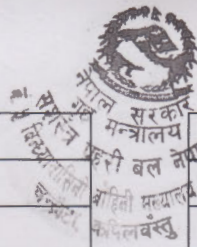 नेपाल सरकार
गृह मन्त्रालय
सशस्त्र प्रहरी बल नेपाल
बाहिनी मुख्यालय
कपिलवस्तु